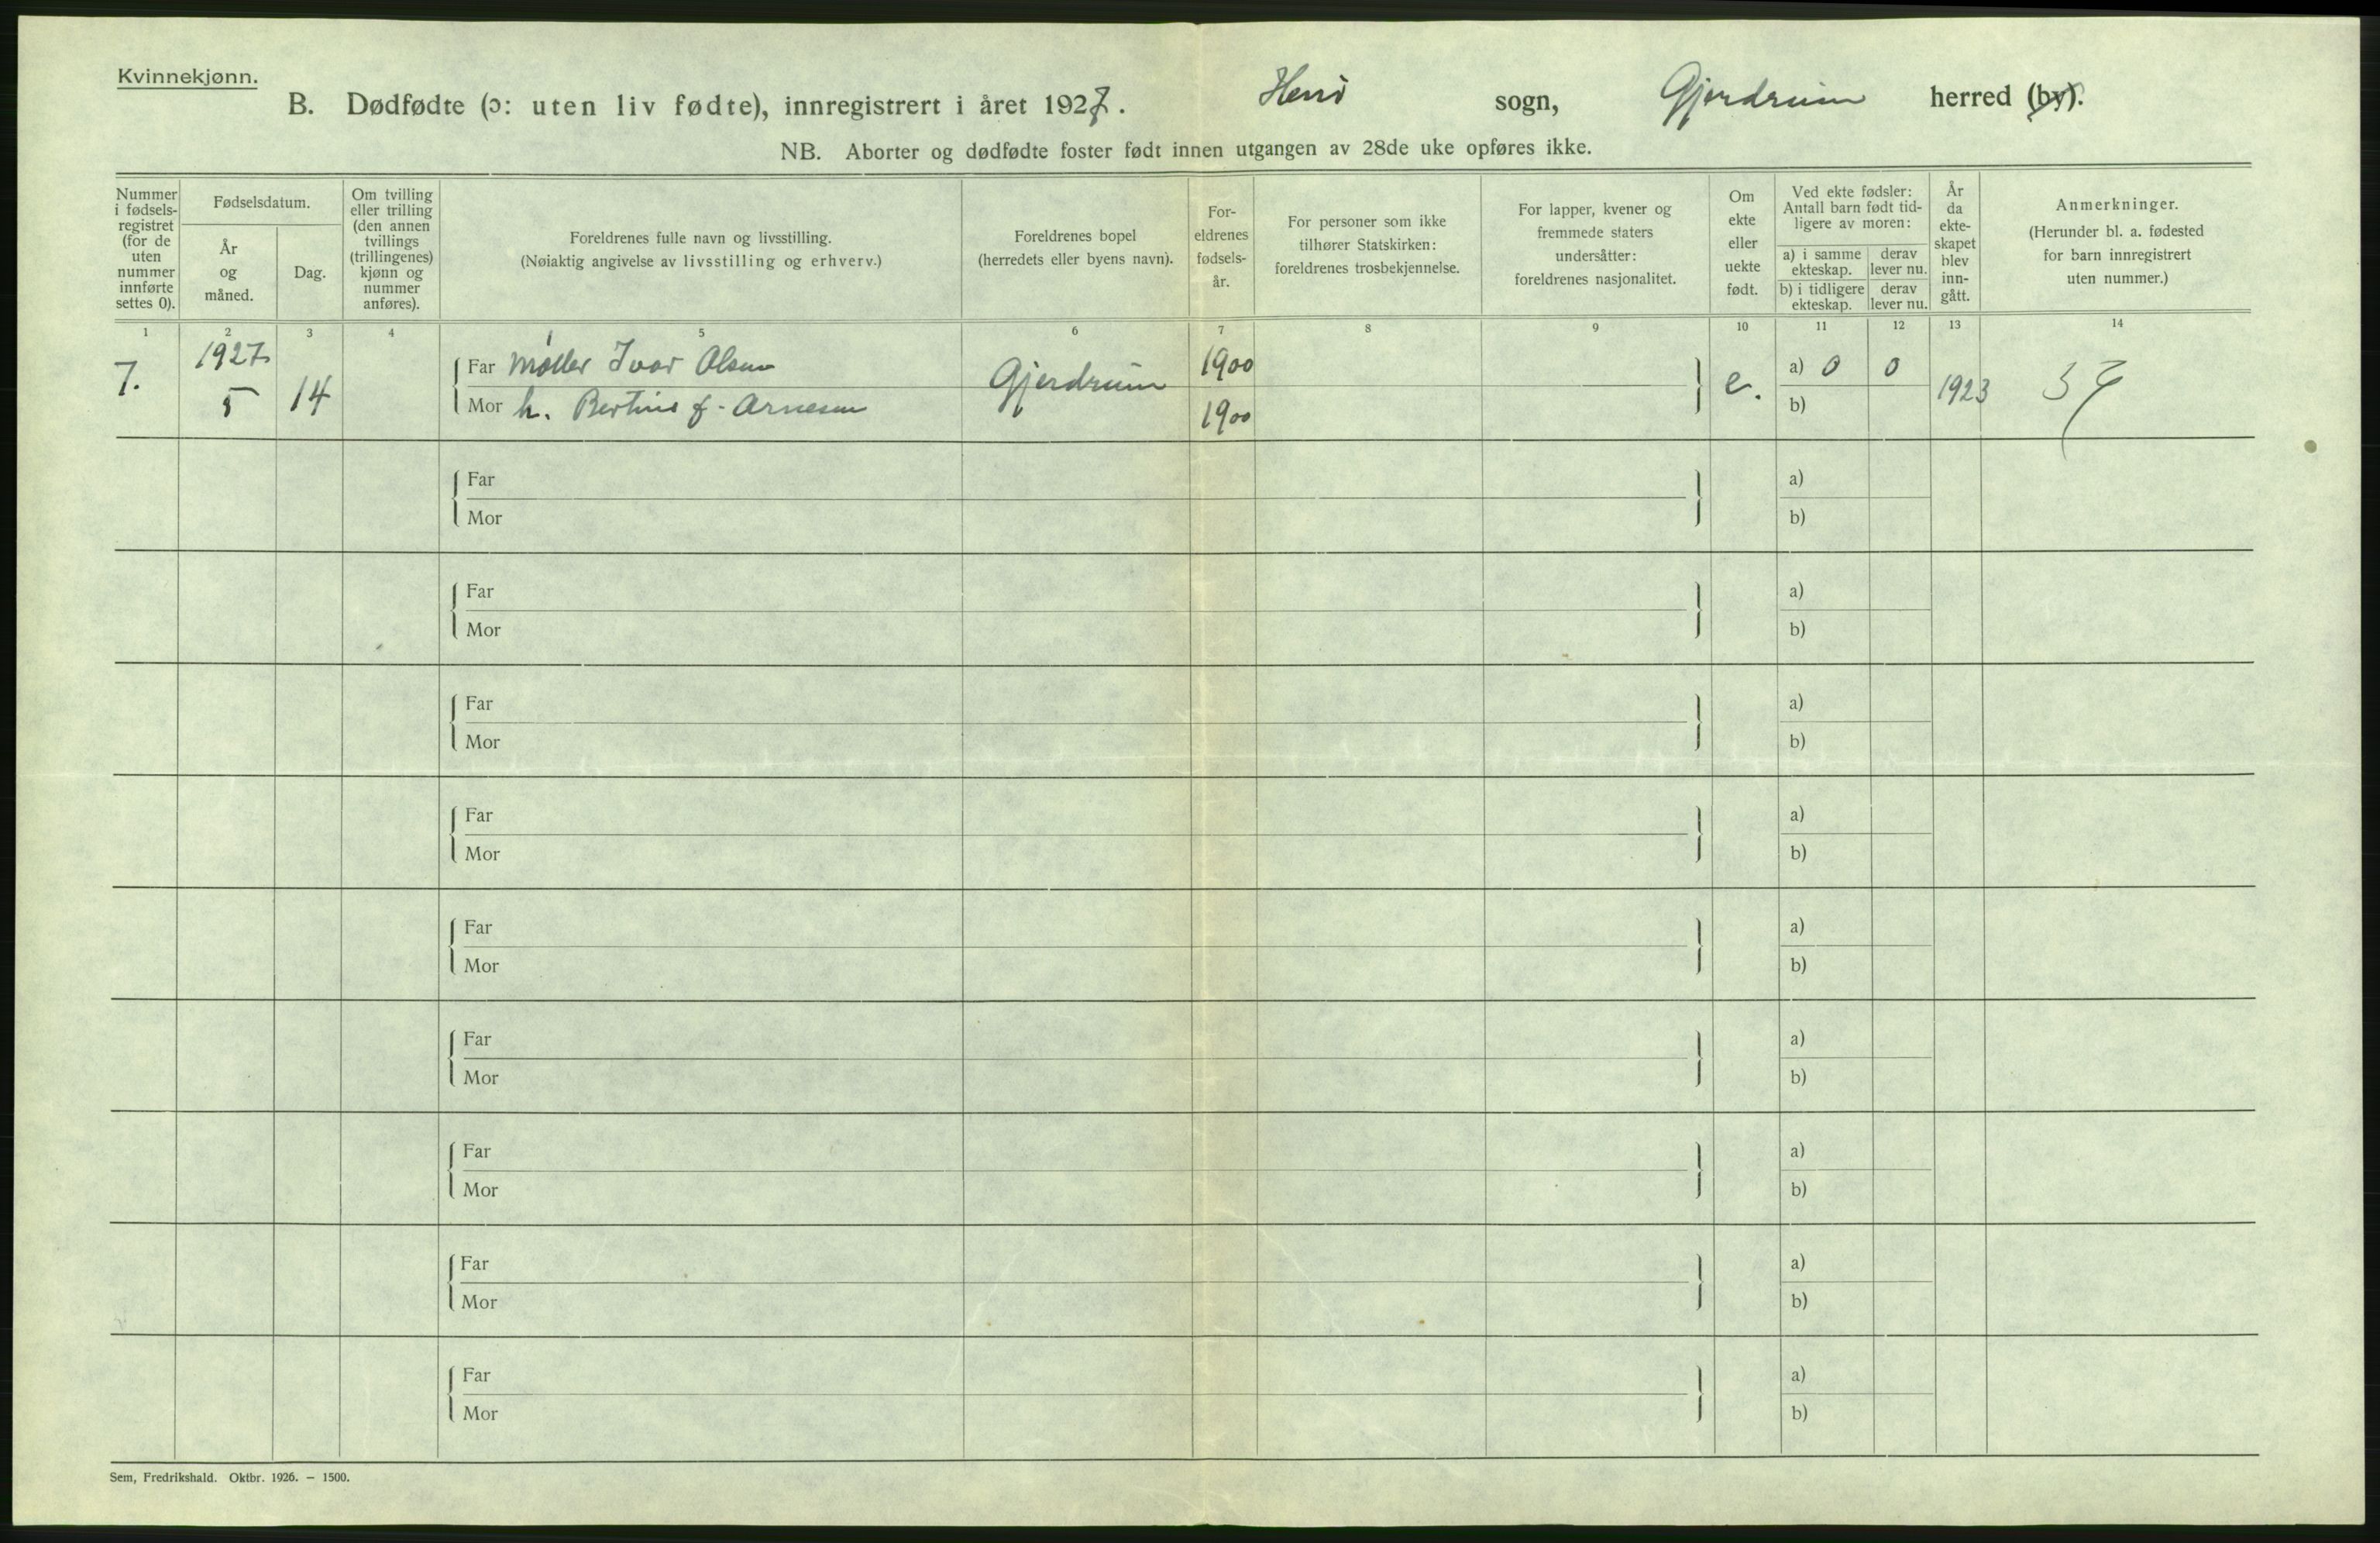 Kvinnekjønn.
B. Dødfødte (ɔ: uten liv fødte), innregistrert i året 1927. sogn, Gjerdrum herred (by).
NB. Aborter og dødfødte foster født innen utgangen av 28de uke opføres ikke.
Nummer i fødsels-registret (for de uten nummer innførte settes 0).
Fødselsdatum.
År og måned.
Dag.
Om tvilling eller trilling (den annen tvillings (trillingenes) kjønn og nummer anføres).
Foreldrenes fulle navn og livsstilling.
(Nøiaktig angivelse av livsstilling og erhverv.)
Foreldrenes bopel
(herredets eller byens navn).
For-eldrenes fødsels-år.
For personer som ikke tilhører Statskirken: foreldrenes trosbekjennelse.
For lapper, kvener og fremmede staters undersåtter: foreldrenes nasjonalitet.
Om ekte eller uekte født.
Ved ekte fødsler: Antall barn født tid-ligere av moren:
a) i samme ekteskap.
derav lever nu.
b) i tidligere ekteskap.
derav lever nu.
År da ekte-skapet blev inn-gått.
Anmerkninger.
(Herunder bl. a. fødested for barn innregistrert uten nummer.)
1 2 3 4 5 6 7 8 9 10 11 12 13 14
7. 1927 5 14
Far Møller Ivar Olsen Gjerdrum 1900 e. a) 0 0 1923
Mor h. f. Arnesen 1900 b)
Far a)
Mor b)
Far a)
Mor b)
Far a)
Mor b)
Far a)
Mor b)
Far a)
Mor b)
Far a)
Mor b)
Far a)
Mor b)
Far a)
Mor b)
Far a)
Mor b)
Sem, Fredrikshald. Oktbr. 1926. – 1500.